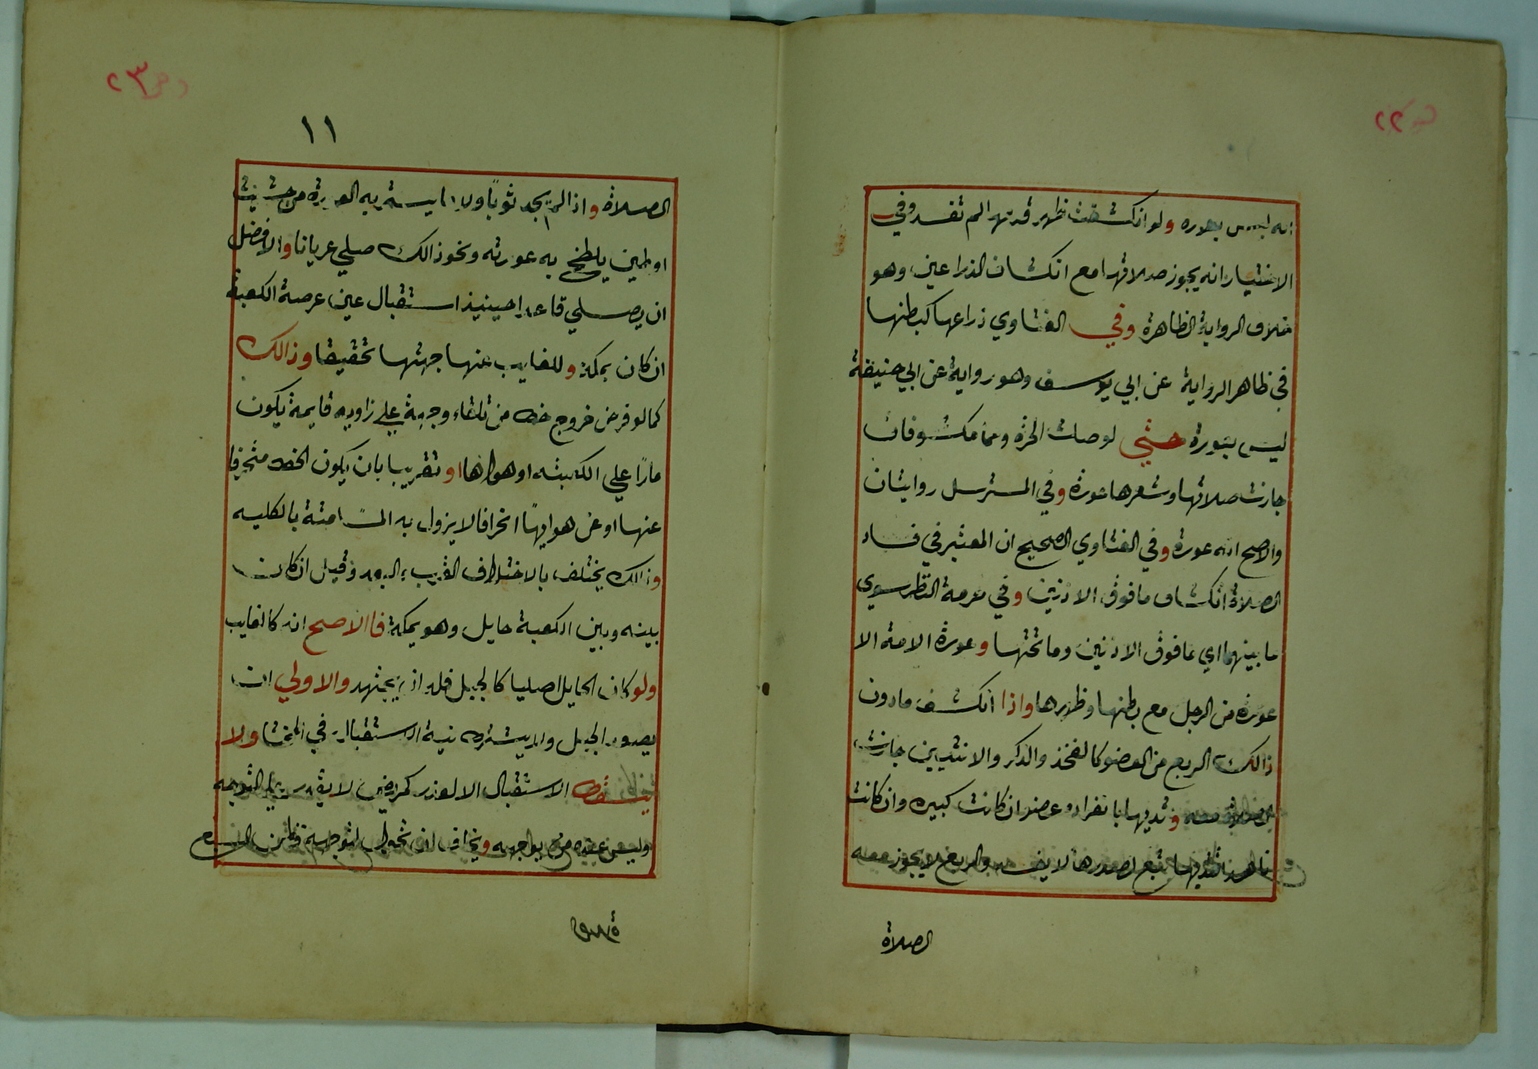 انه ليس بعورة ولو انكشفت ظهر قدميها لم تفسد وفي
الاختيار انه يجوز صلاتها مع انكشاف الذراعين وهو
خلاف الرواية الظاهرة وفي الفتاوي ذراعها كبطنها
في ظاهر الرواية عن ابي يوسف وهو رواية عن ابي حنيفة
ليس بعورة حتي لو صلت الحرة وهما مكشوفان
جازت صلاتها وشعرها عورة وفي المسترسل روايتان
والاصح انه عورة وفي الفتاوي الصحيح ان المعتبر في فساد
الصلاة انكشاف ما فوق الاذنين وفي حرمة النظر سوي
ما بينهما اي ما فوق الاذنين وما تحتها وعورة الامة الا
عورة من الرجل مع بطنها وظهرها واذا انكشف مادون
ذالك الربع من العضو كالفخذ والذكر والانثيين جازت
الصلاة معه وثديها بانفراده عضو ان كانت كبيرة وان كانت
ناهدا فثديها تبع لصدرها والربع لا يجوز معه
الصلاة
١١
الصلاة واذا لم يجد ثوبا ولا ما يستر به العورة من حشيش
او طين يلطخ به عورته ونحو ذالك صلي عريانا والافضل
ان يصلي قاعدا حينيذ استقبال عين عرصة الكعبة
ان كان بمكة وللغايب عنها جهتها تحقيقا وذالك
كما لو فرض خروج خط من تلقاء وجهه علي زاوية قايمة يكون
مارا علي الكعبة او هواها او تقريبا بان يكون الخط منحرفا
عنها او عن هوايها انحرافا لا يزول به المسامتة بالكليه
وذالك يختلف بالاختلاف القرب والبعد وقيل ان كان
بينه وبين الكعبة حايل وهو بمكة فاالاصح انه كالغايب
ولو كان الحايل اصليا كالجبل فله ان يجتهد والاولي ان
يصعد الجبل ولا يشترط نية الاستقبال في المختار ولا
يسقط الاستقبال الا لعذر كمريض لا يقدر علي التوجه
وليس عنده من يوجهه ويخاف ان تحول لتوجهة